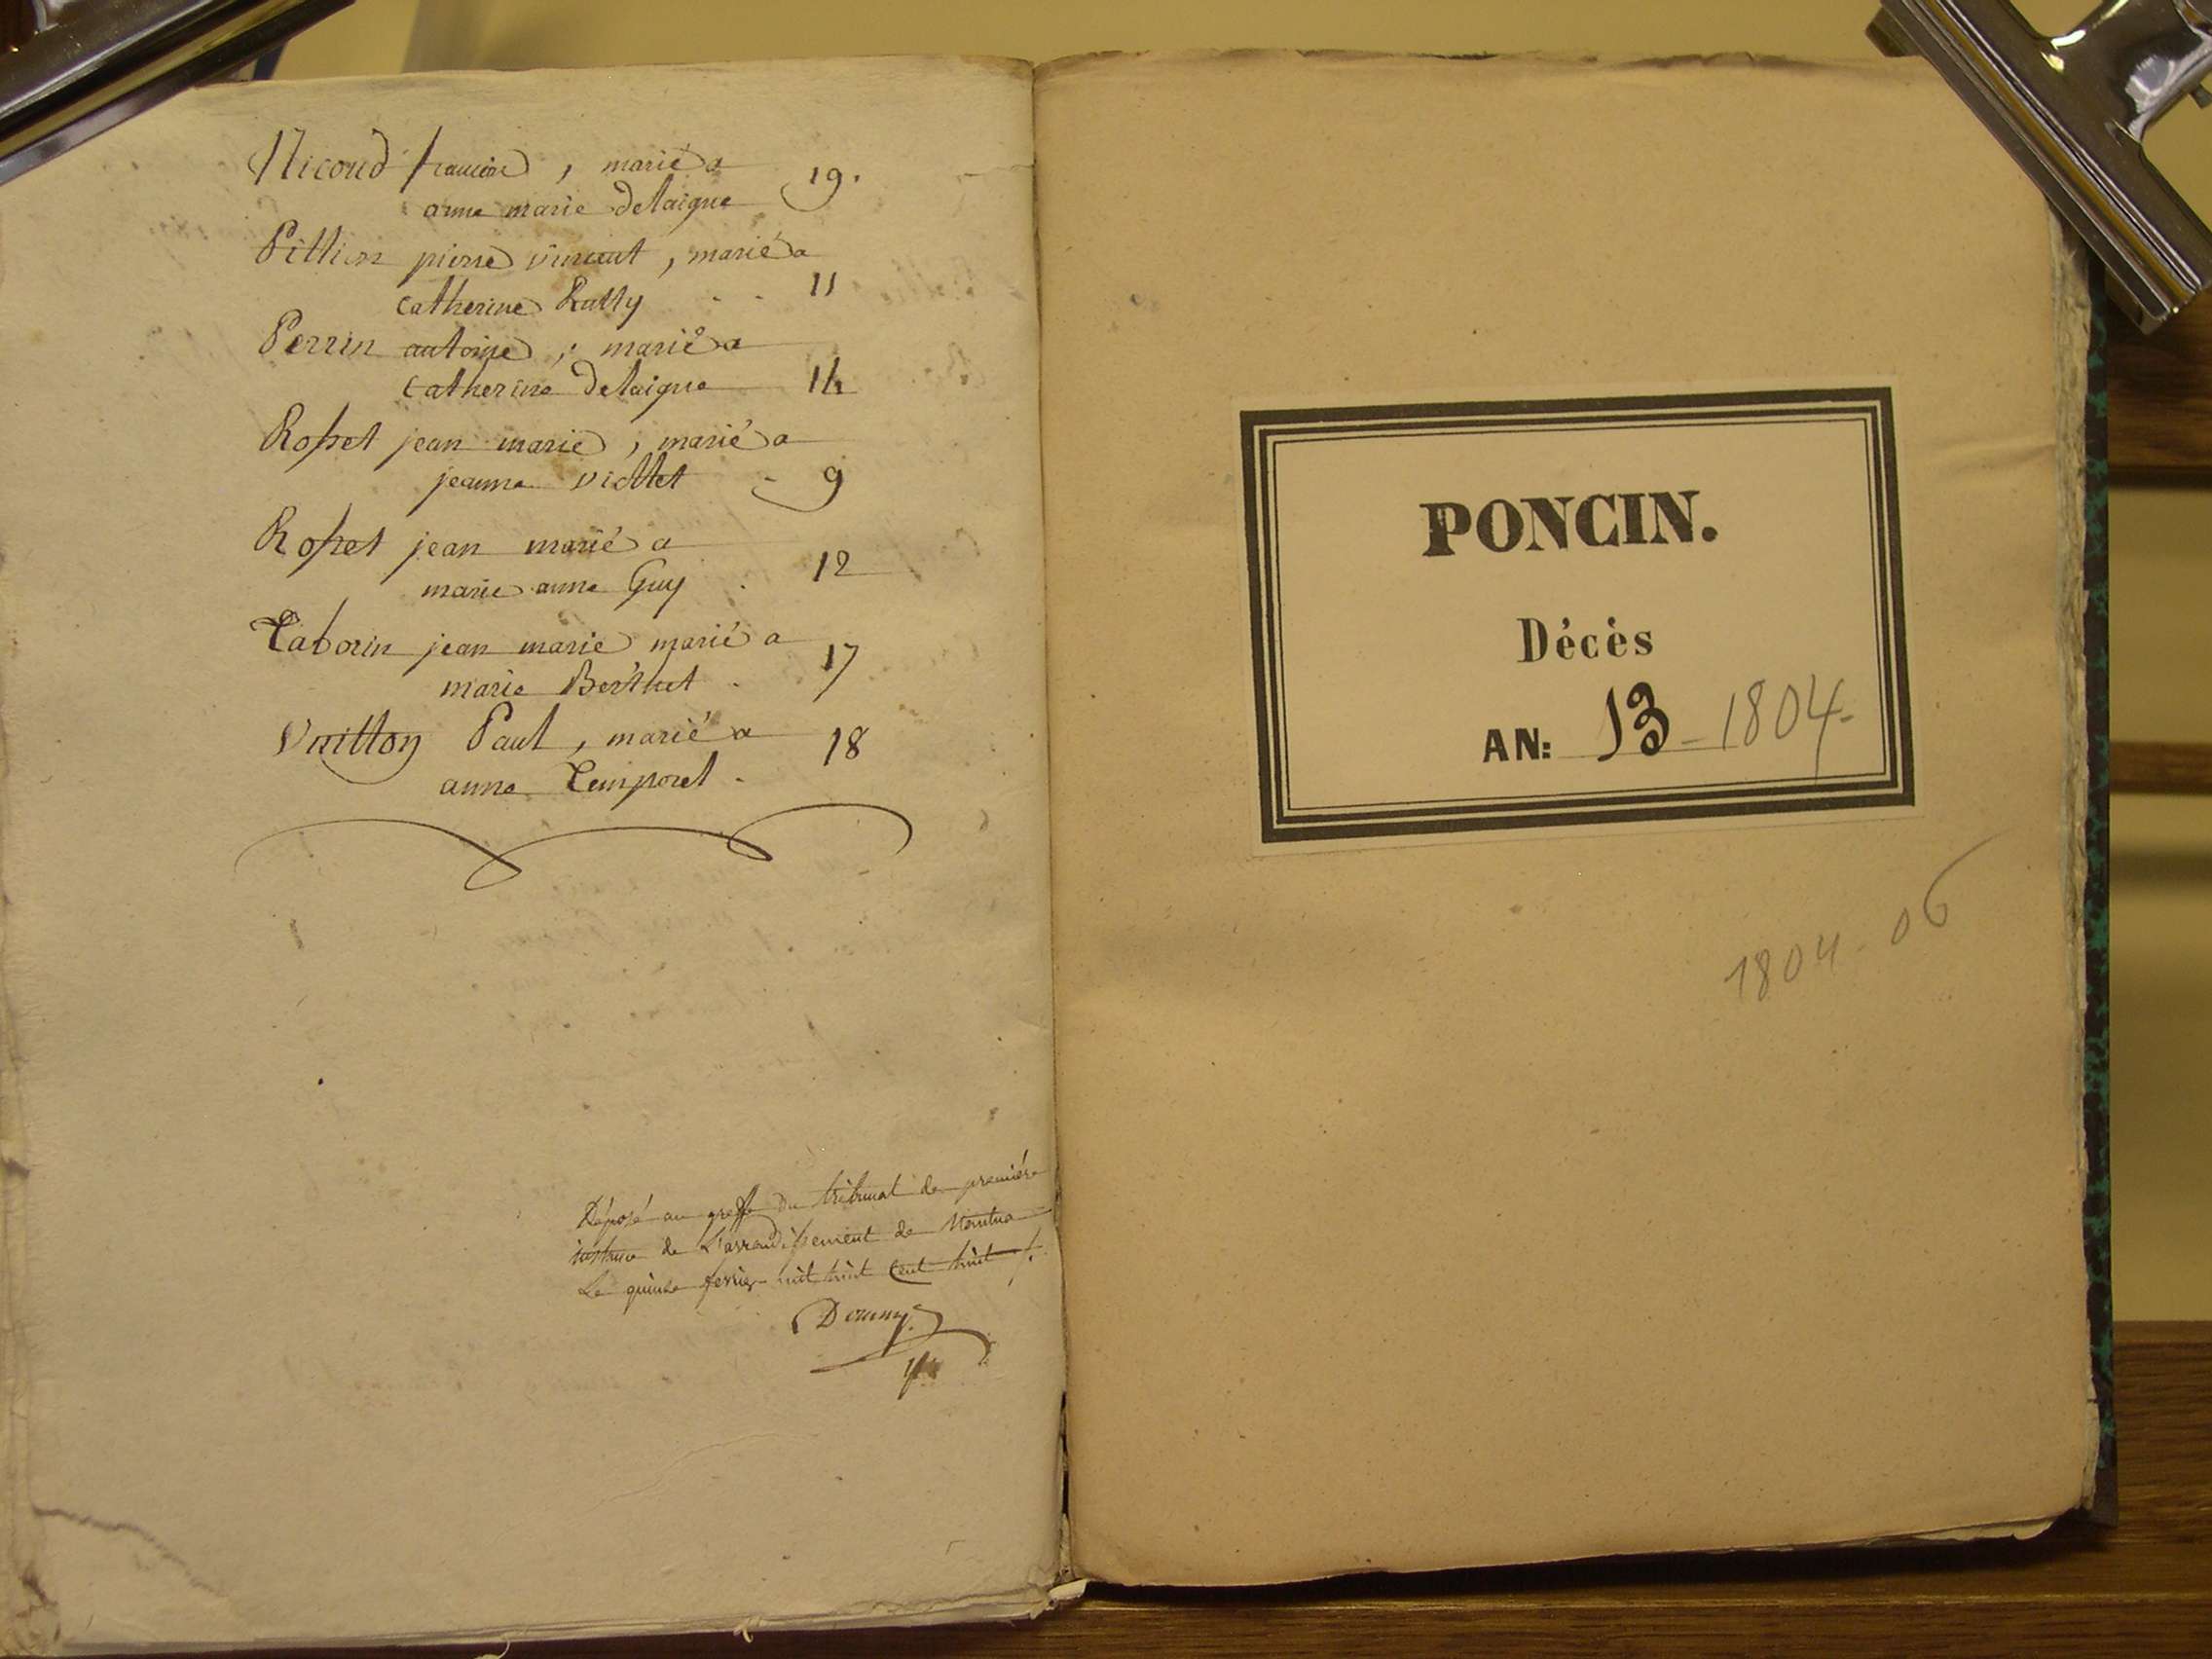 Nicoud francois, marié a 19.
anne marie delaigue
Pillion pierre vincent, marié a
catherine Ratty . . 11
Perrin antoine, marié a
catherine delaigue 14
Rosset jean marie, marié a
jeanne viollet - 9
Rosset jean marié a
marie anne Guy . 12
Taborin jean marie marié a 17
marie Berthet .
Vuitton Paul, marié a 18
anne Temporel .
Déposé au greffe du tribunal de premiére
instance de L'arrondissement de Nantua
Le quinze fevrier mil huit Cent huit
PONCIN.
Décès
AN: 13 - 1804-
1804-06